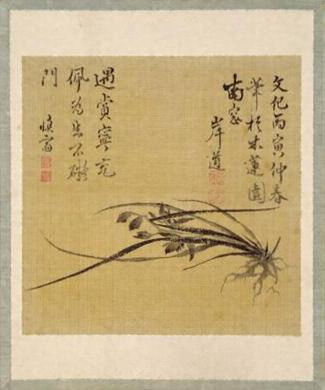 文化丙寅仲春
筆於木蓮園
南窓
岸道
遇賞寧充
佩為生不礙
門
慎齋